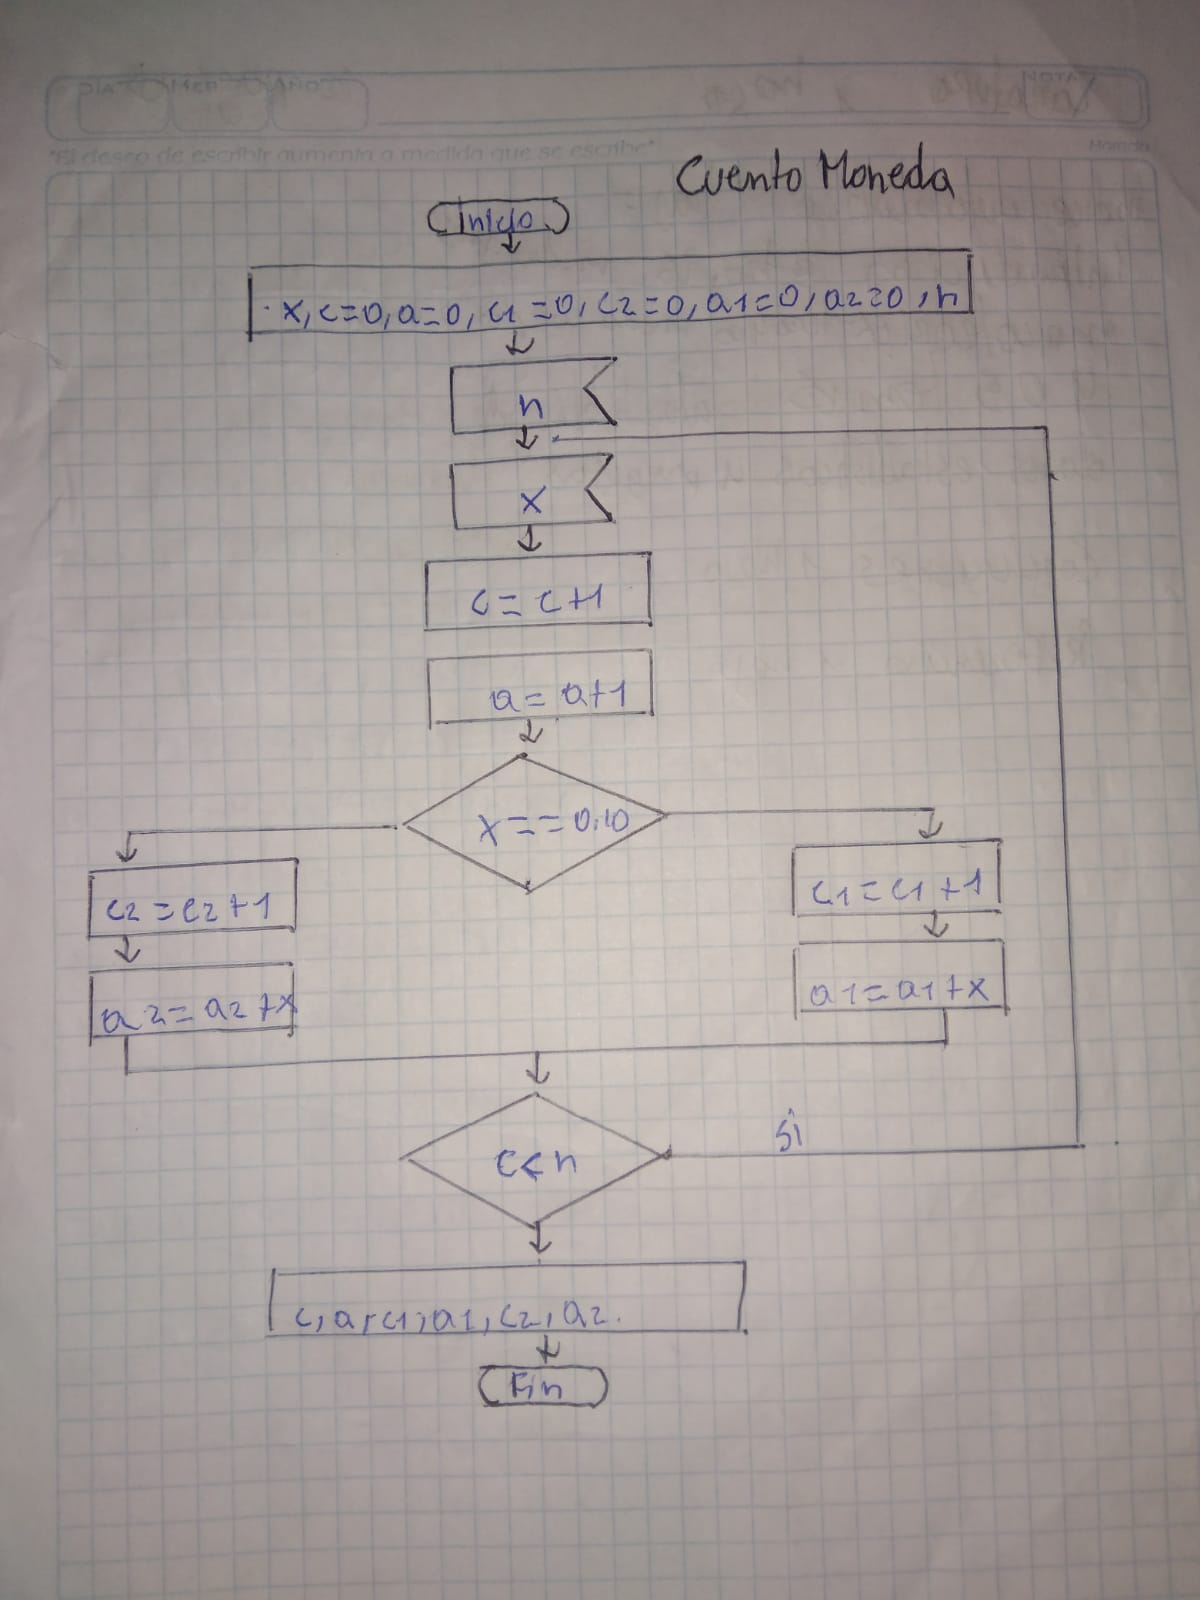 DÍA MES AÑO NOTA
"El deseo de escribir aumenta a medida que se escribe"
Cuento Moneda
Inicio
x, c=0, a=0, c1=0, c2=0, a1=0, a2=0, n
n
x
c=c+1
a=a+1
x==0.10
c2=c2+1
c1=c1+1
a2=a2+x
a1=a1+x
c<n
Si
c, a, c1, a1, c2, a2.
Fin